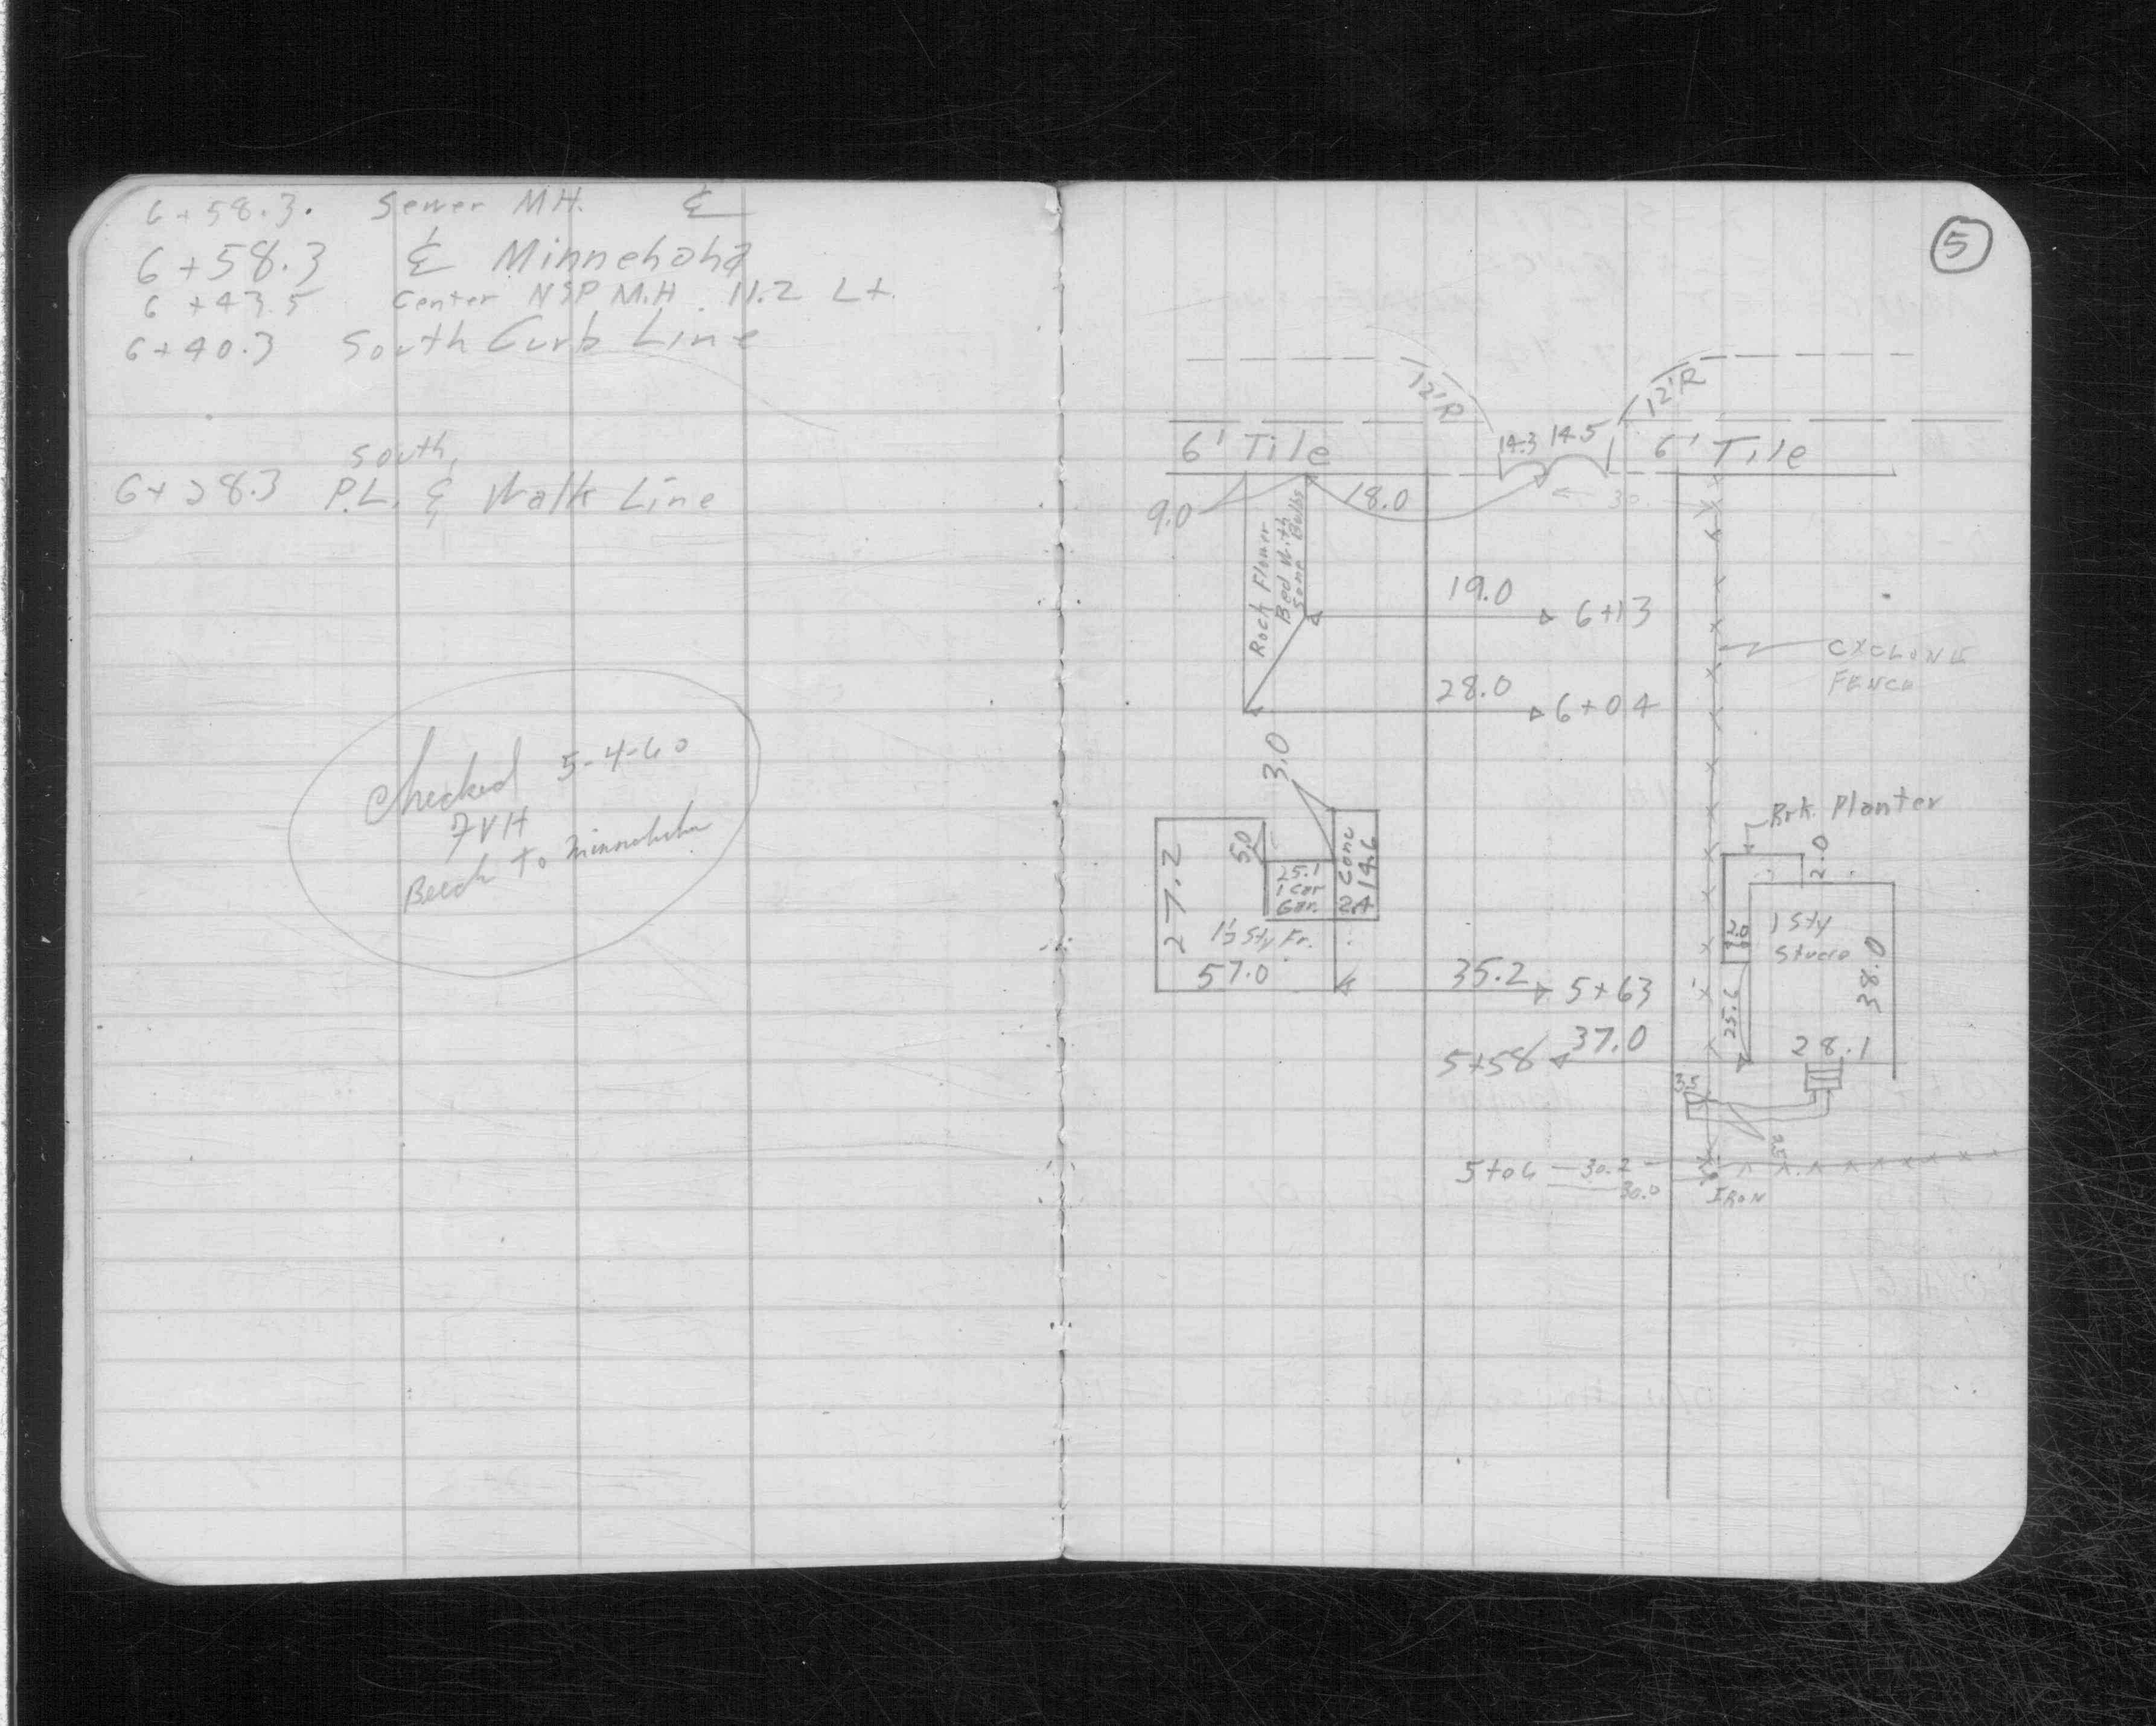 6+58.3. Sewer M.H. ℄
6+58.3 ℄ Minnehaha
6+43.5 Center NSP M.H. 11.2 Lt.
6+40.3 South Curb Line
South
6+28.3 P.L. & Walk Line
Checked 5-4-60
FVH
Beech to Minnehaha
5
12'R
12'R
6' Tile
14.3 14.5
6' Tile
9.0
18.0
30
Rock Flower
Bed With
Some Bulbs
19.0
6+13
CYCLONE
FENCE
28.0
6+04
3.0
Brk. Planter
27.2
5.0
25.1
1 Car
Gar.
2 Conc
14.6
2.0
2.0
1 Sty
Stucco
38.0
1½ Sty Fr.
57.0
35.2
5+63
25.6
5+58
37.0
28.1
3.5
5+06
30.2
30.0
IRON